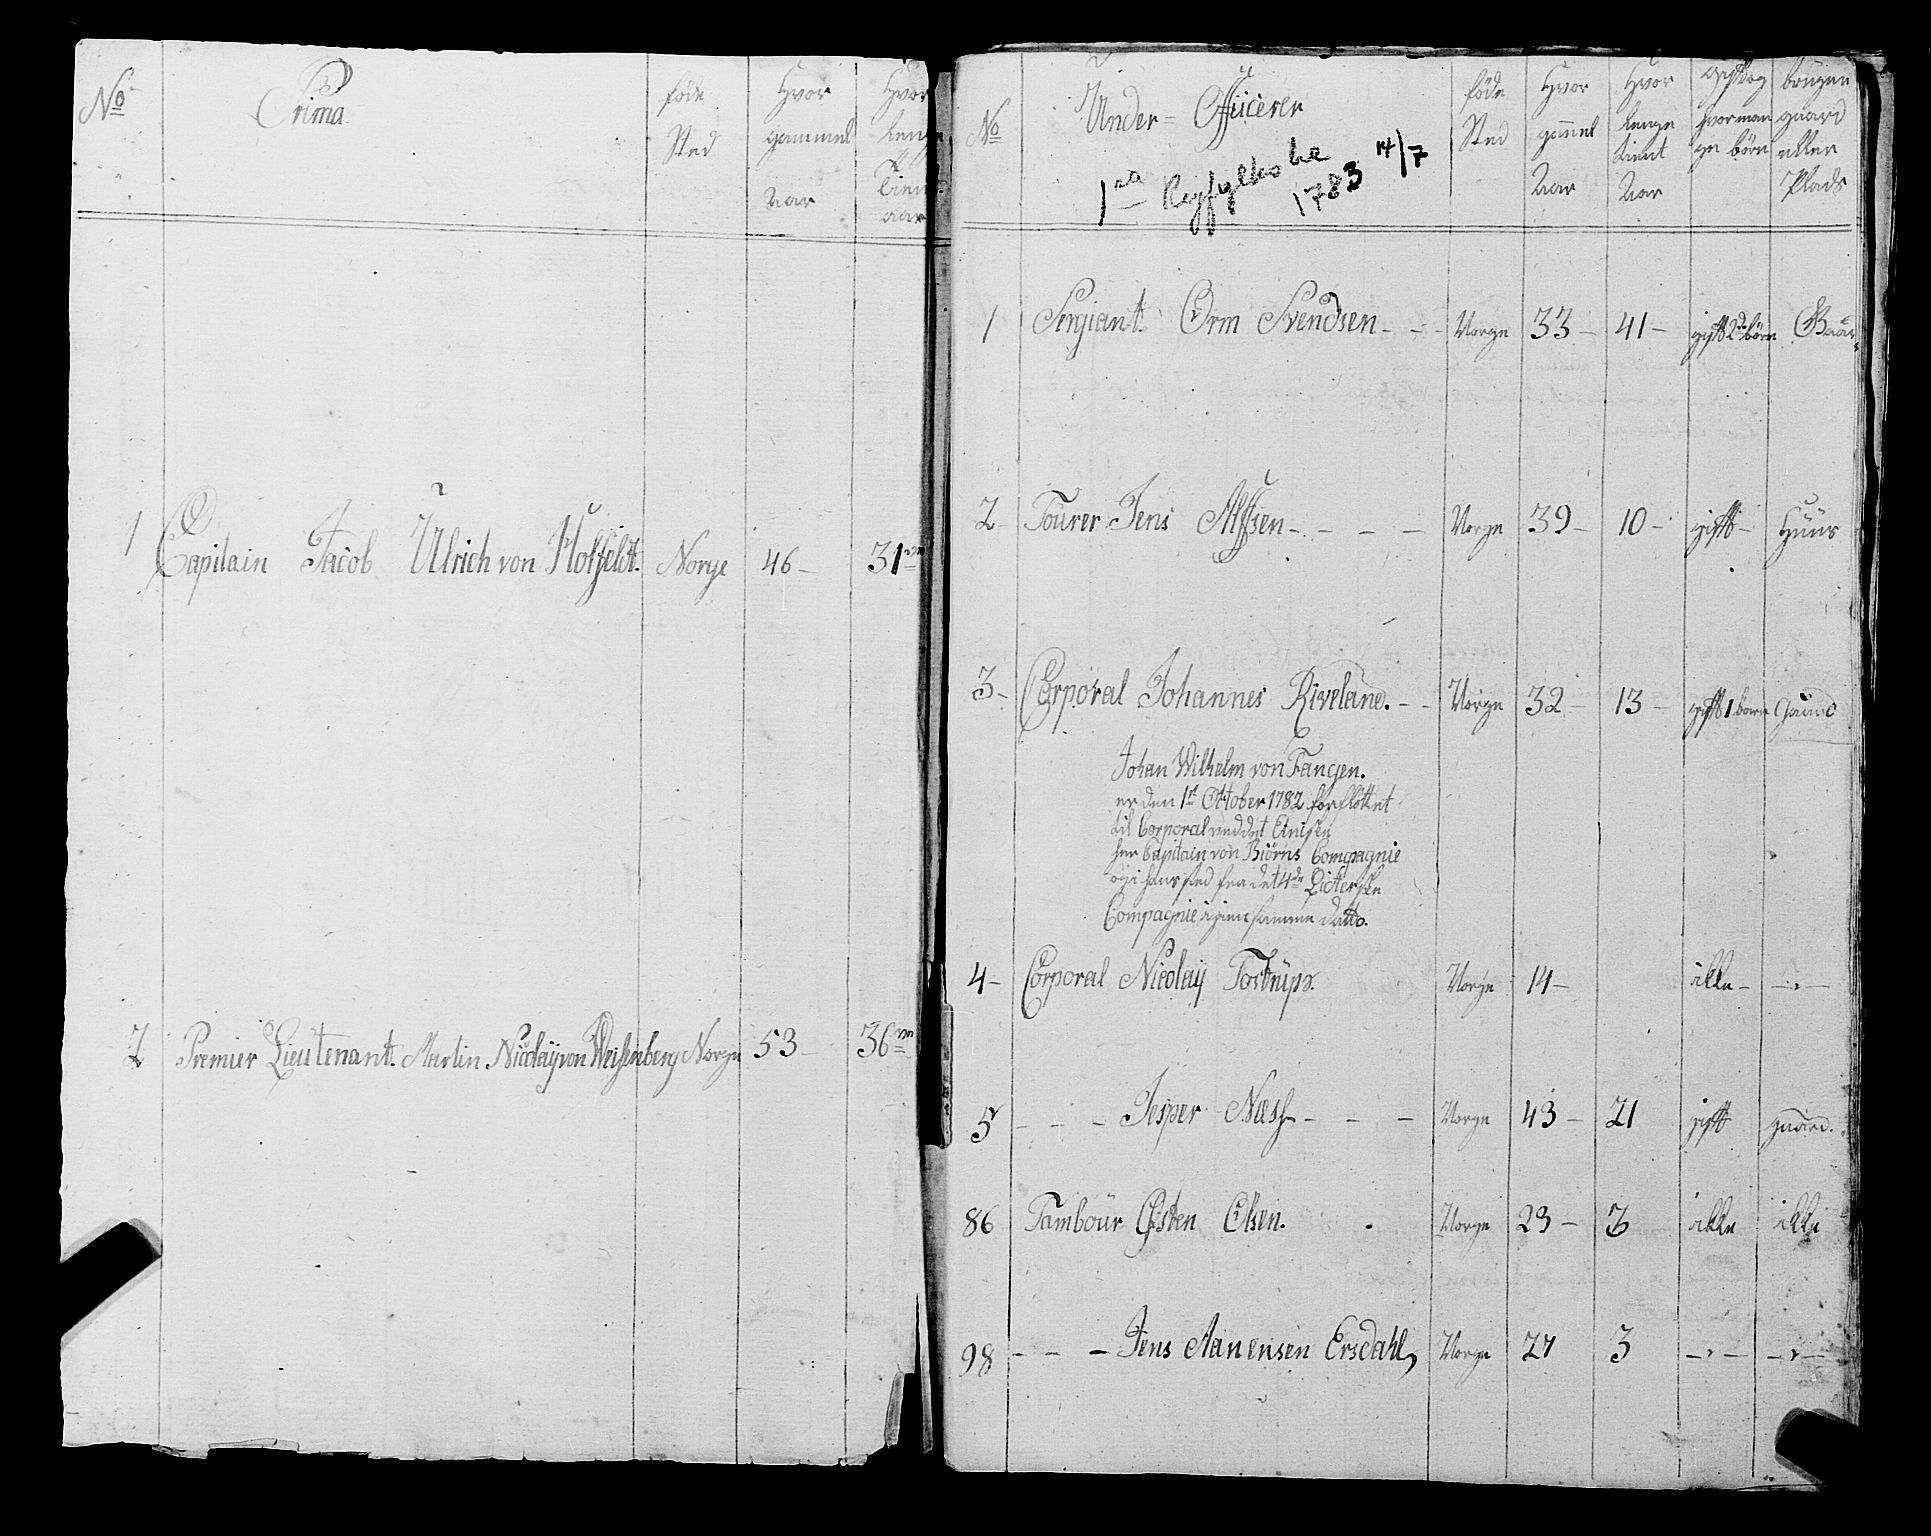 No
Prima
føde
Sted
Hvor
gammel
Aar
Hvor
lenge
Tien
aar
1 Capitain Jacob Ulrich von Hotfeldt. Norge 46 – 31
2 Premier Lieutenant. Martin Nicolaÿ von Weisenberg Norge 53 – 36
No
Under- Officerer
1ste Ryfylkske
1783 14/7
føde
Sted
Hvor
gamel
Aar
Hvor
lenge
tient
Aar
gift og
hvor man
ge børn
bruger
gaard
eller
Plads
1 Sergiant. Orm Svendsen - - - Norge 33 – 41 – gift 2de børn Gaar
2 Fourer Jens Alffsen - - - - Norge 39 – 10 – gift – Huus
3 - Corporal Johannes Riveland. - - Norge 32 – 13 – gift 1 barn Gaard
Johan Wilhelm von Fangen.
er den 1st October 1782 forflöttet
til Corporal ved det
her Capitain von Biörns Compagnie
og i hans sted fra det 4de Listerske
Compagnie igien samme datto.
4 - Corporal Nicolaÿ Tostrup. Norge 14 – ikke – – " –
5 - - - Jesper Næss - - - Norge 43 – 21 gift gaard.
86 Tambour Østen Olsen. Norge 23 – 3 ikke ikke
98 - - - Jens Aanensen Ersdahl, Norge 27 3 – " – – " –